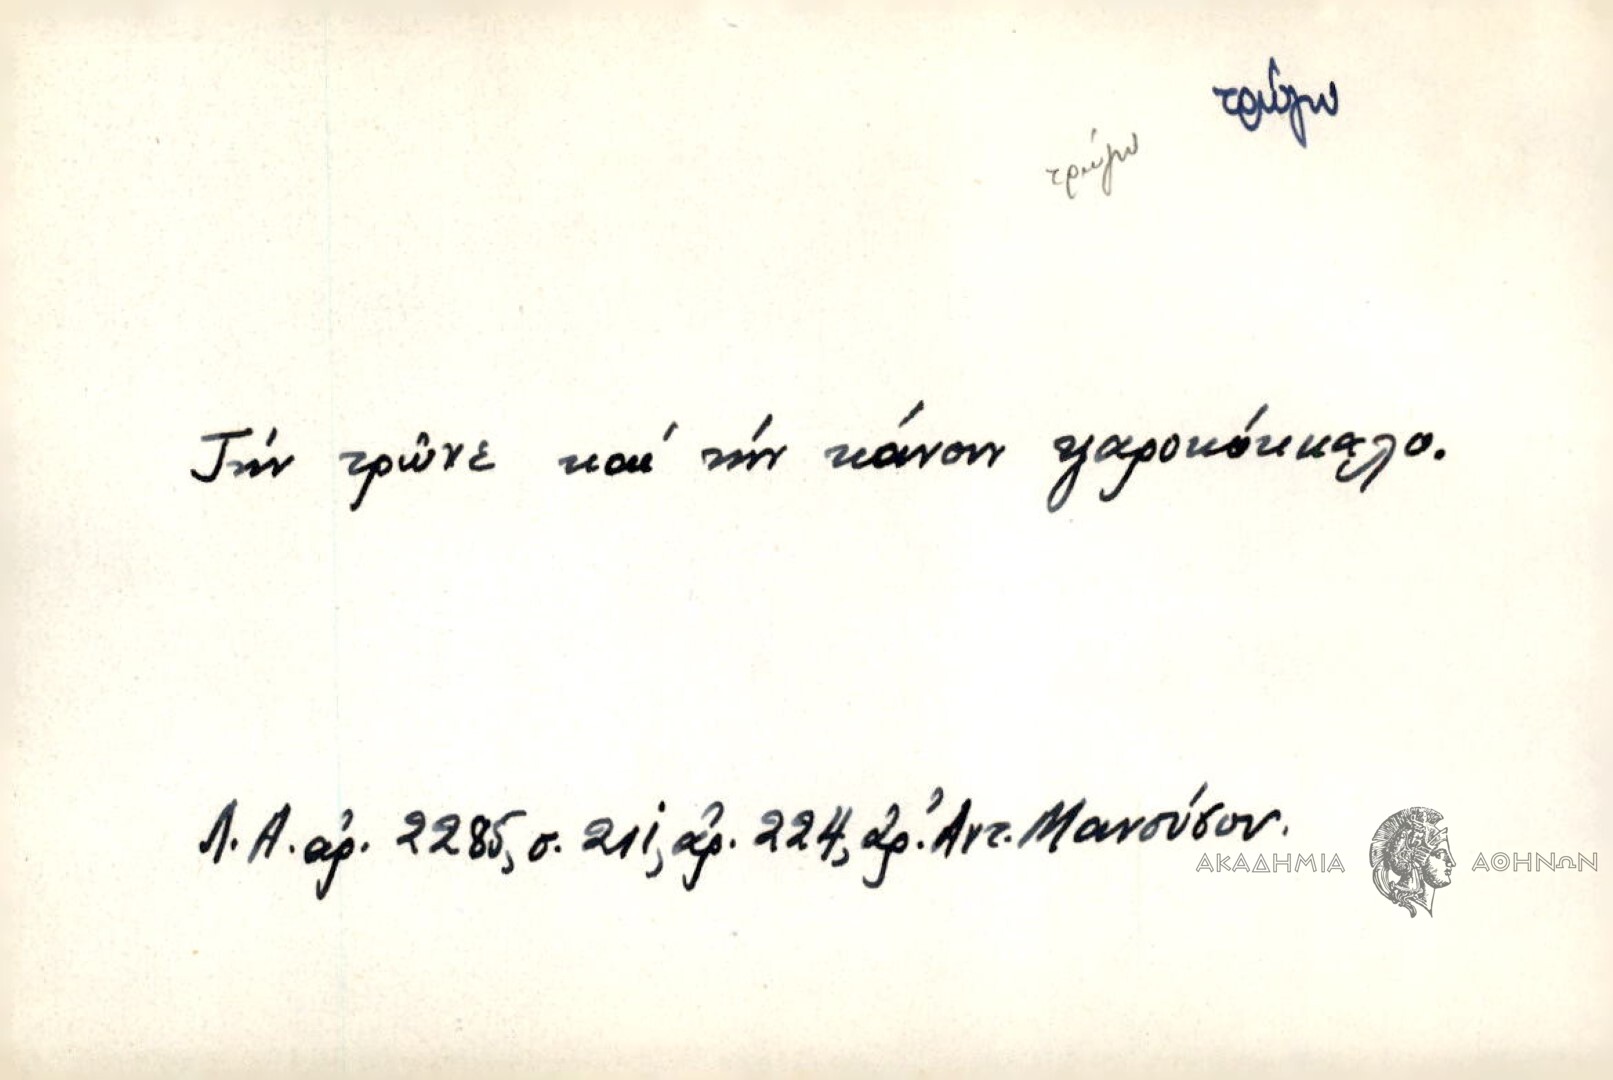 τρώγω
τρώγω
Τήν τρῶνε καί τήν κάνουν ψαροκόκκαλο.
Λ. Α. ἀρ. 2285, σ. 211, ἀρ. 224, ἀρ. Ἀντ. Μανούσου.
ΑΚΑΔΗΜΙΑ ΑΘΗΝΩΝ